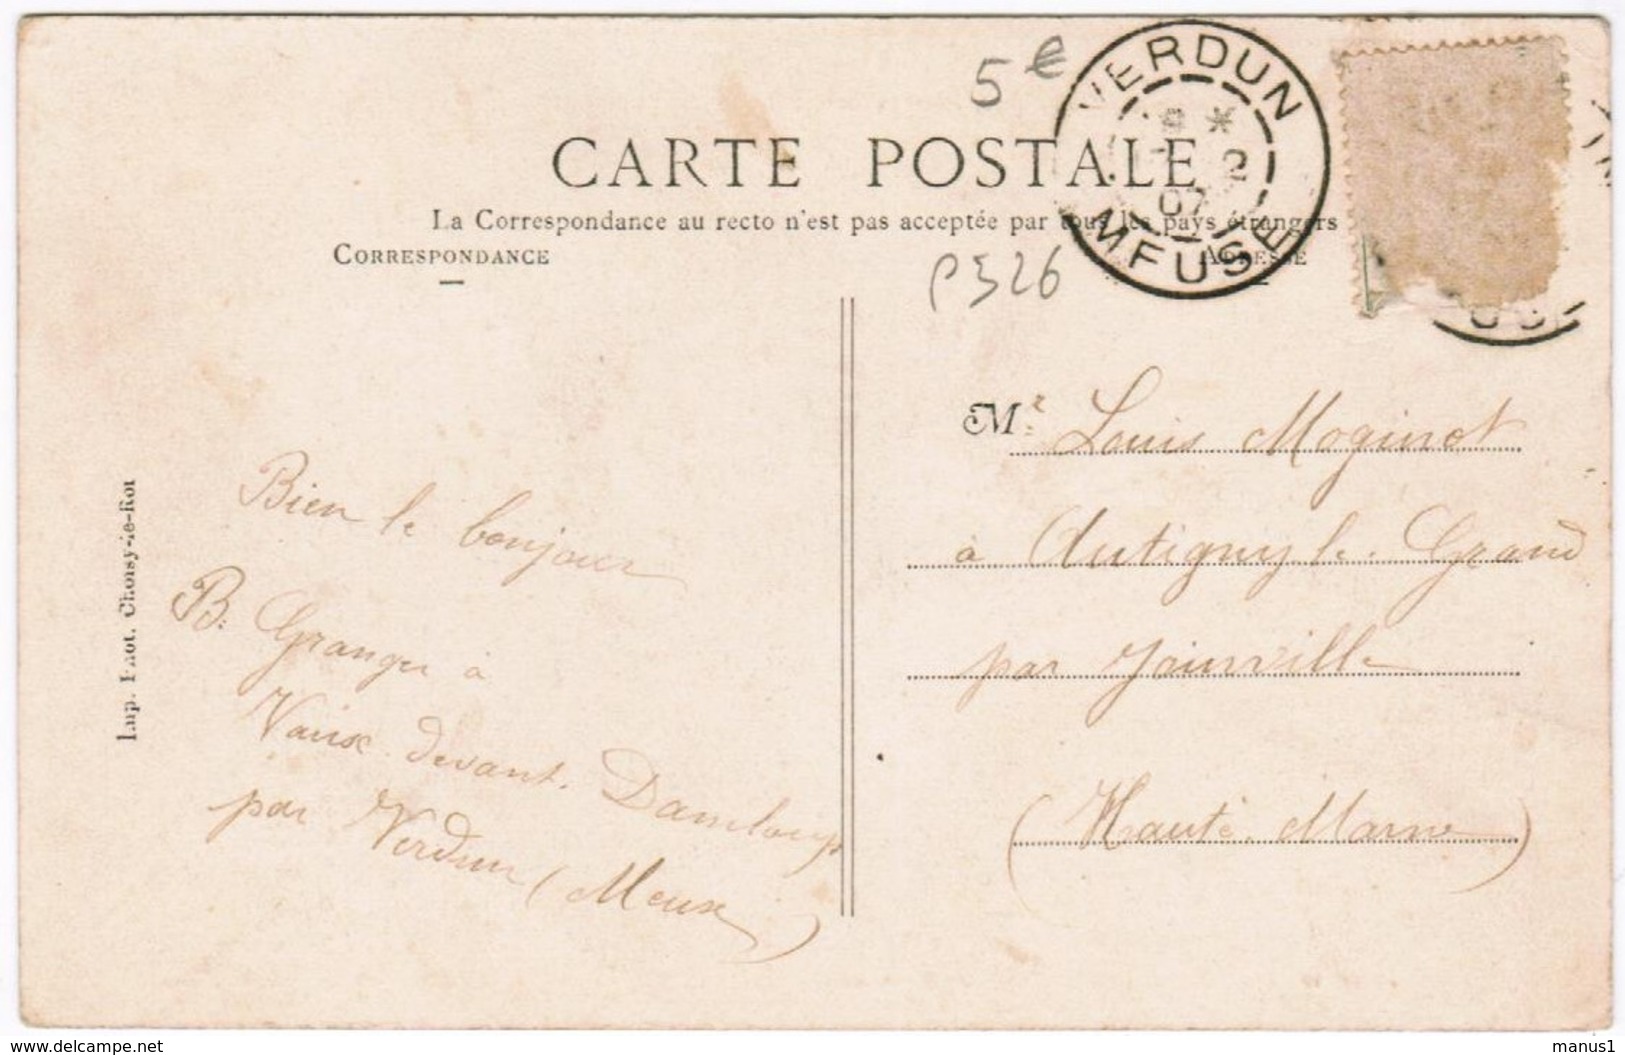 5 €
VERDUN
2
07
MEUSE
CARTE POSTALE
La Correspondance au recto n'est pas acceptée par tous les pays étrangers
CORRESPONDANCE
ADRESSE
P 326
Mr. Louis Moginot
à Autigny le Grand
par Joinville
(Haute-Marne)
Bien le bonjour
B. Granger à
Vaux devant Damloup
par Verdun (Meuse)
Imp. Phot. Choisy-le-Roi
www.delcampe.net
manus1